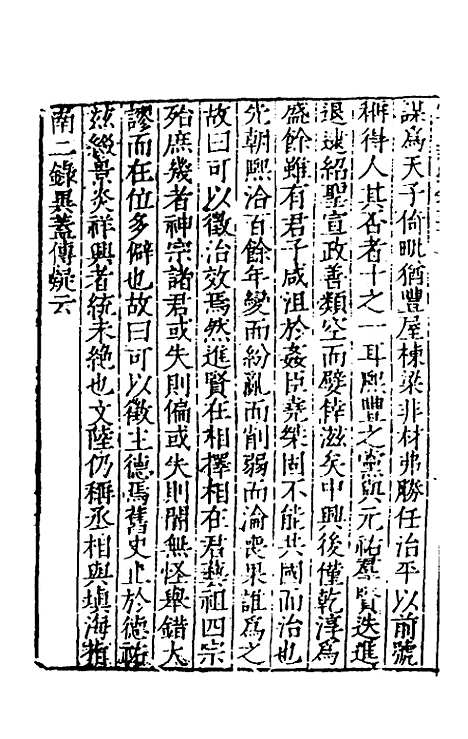 謀為天子倚毗猶豐屋棟梁非材弗勝任治平以前號
稱得人其否者十之一耳熙豐之黨與元祐羣賢迭進
退逮紹聖宣政善類空而孽倖滋矣中興後僅乾淳為
盛餘雖有君子咸沮於姦臣堯桀固不能共國而治也
先朝熙洽百餘年變而紛亂而削弱而淪喪果誰為之
故曰可以徵治效焉然進賢在相擇相在君藝祖四宗
殆庶幾者神宗諸君或失則偏或失則闇無怪舉錯大
謬而在位多僻也故曰可以徵主德焉舊史止於德祐
玆綴景炎祥興者統未絶也文陸仍稱丞相與填海
南二錄異蓋傳疑云